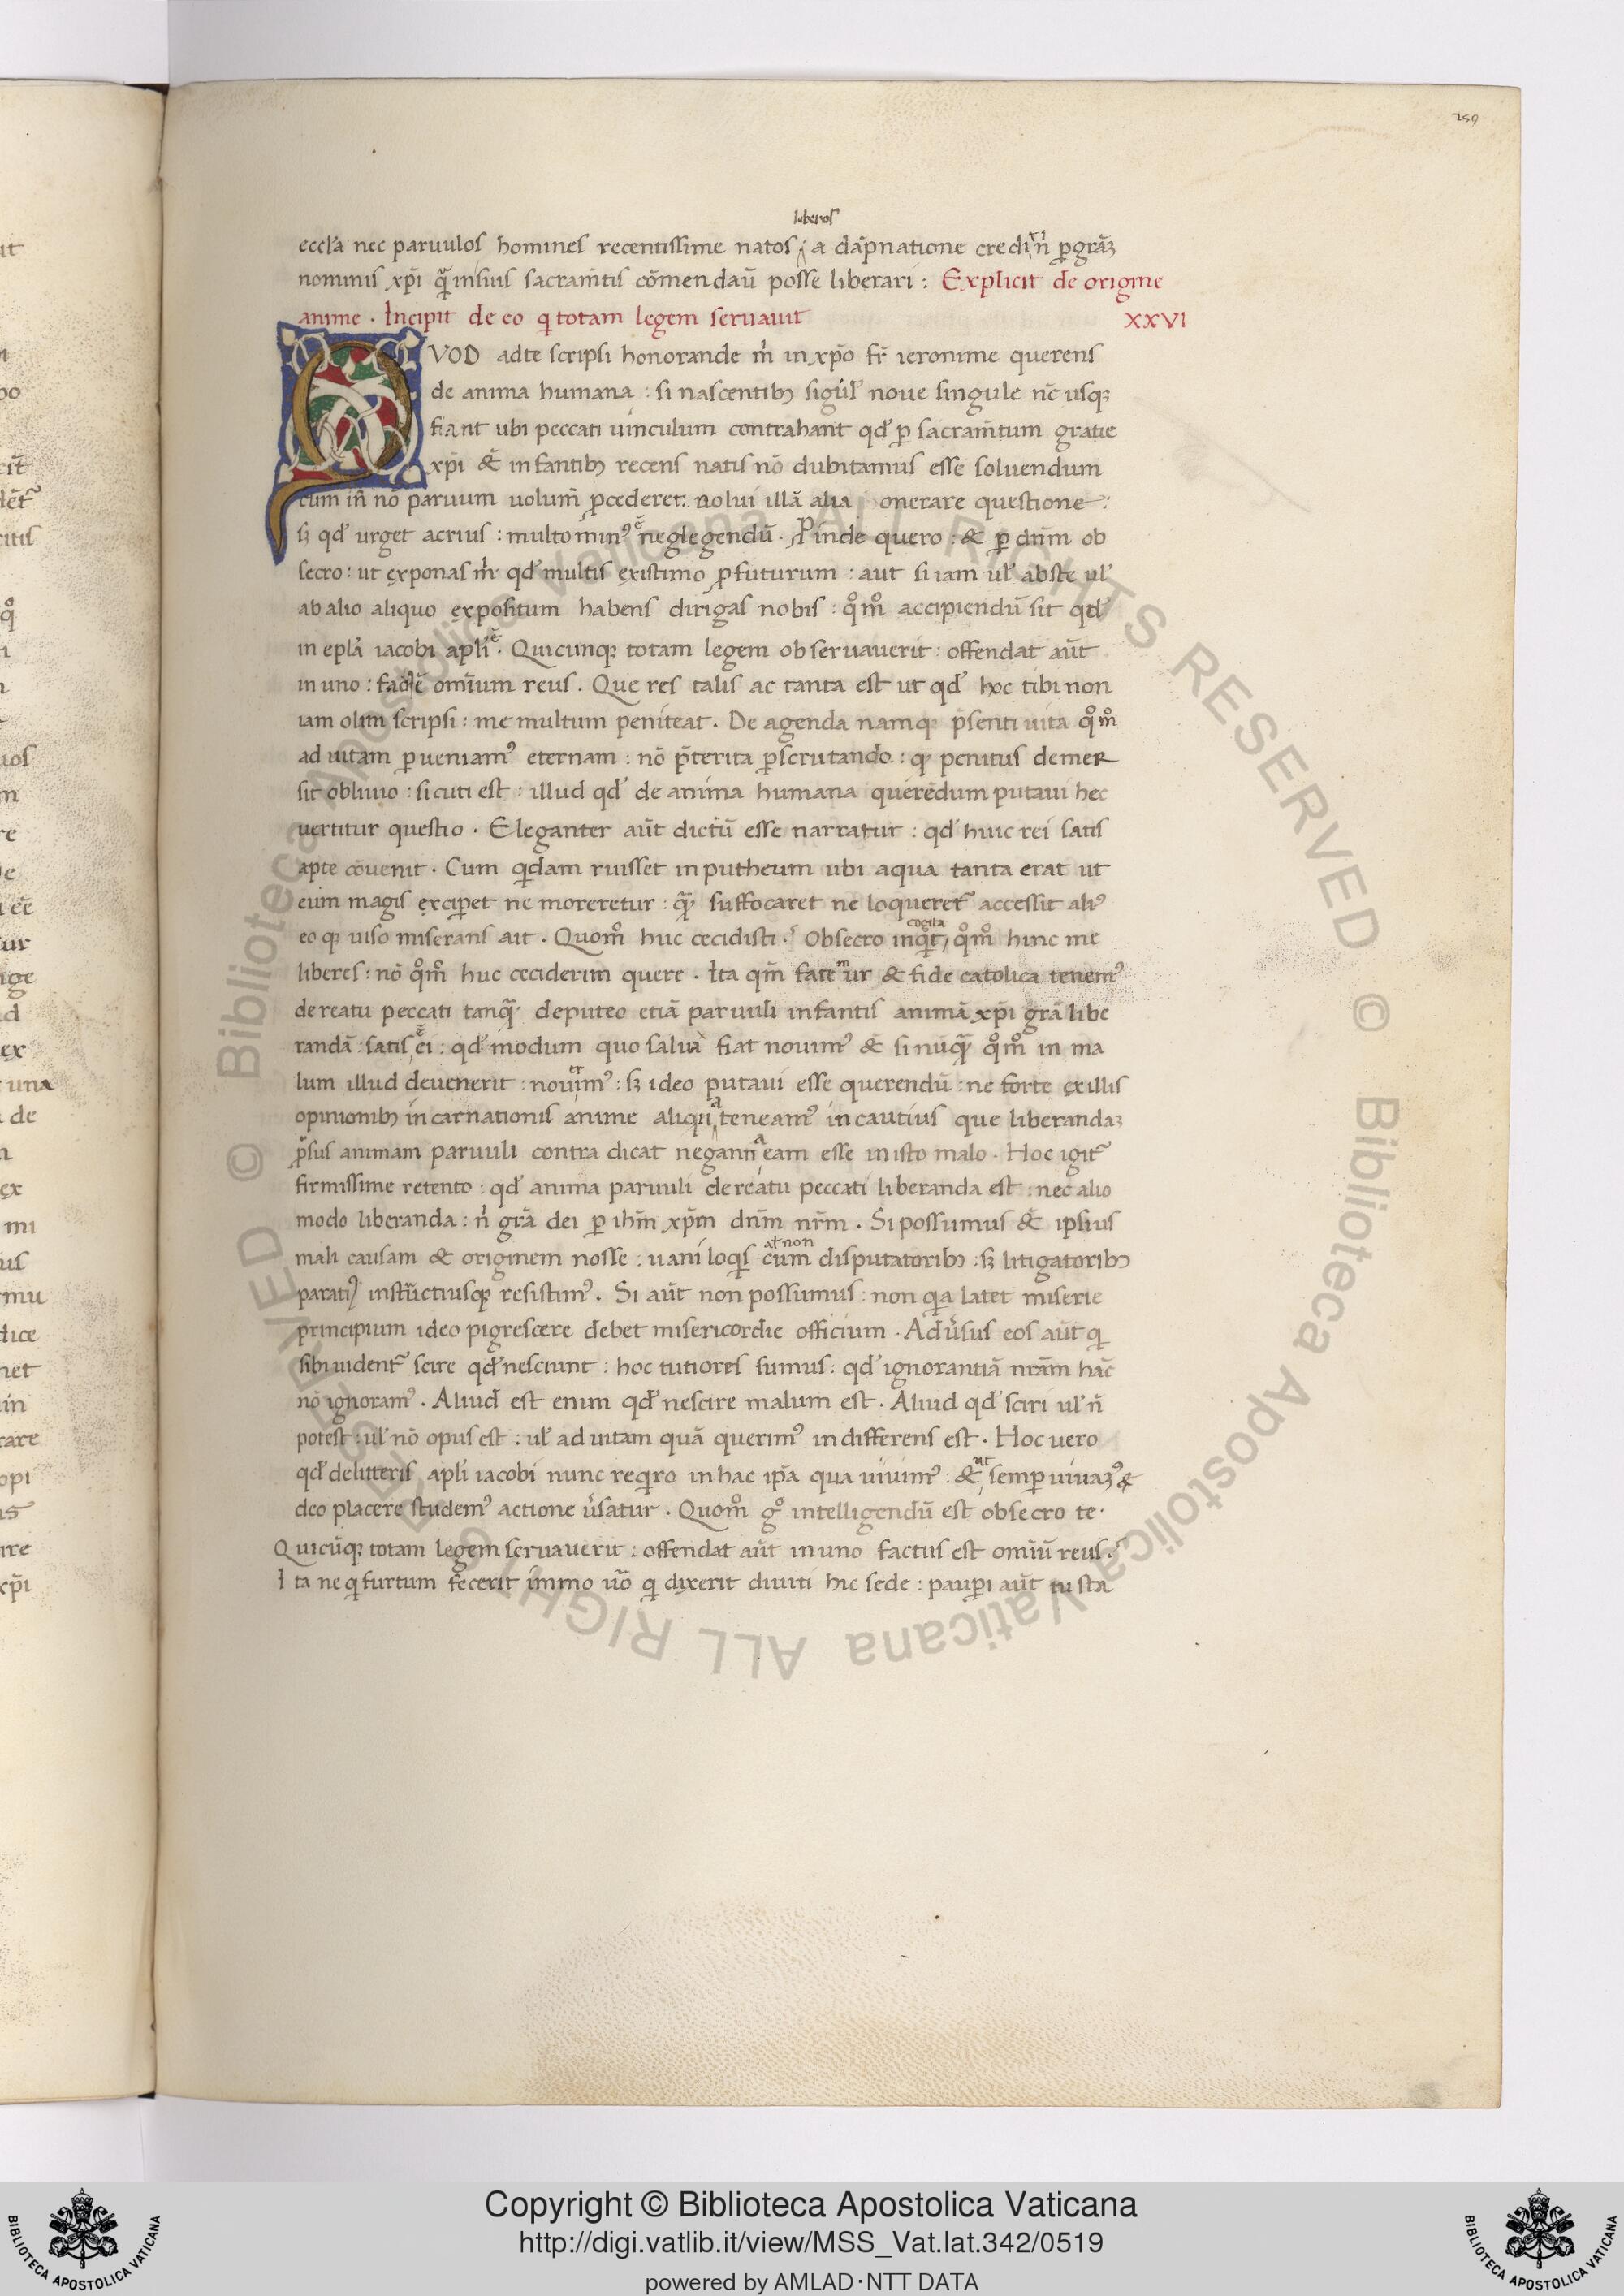 259
liberos
eccl̄a nec paruulos homines recentissime natos a dāpnatione credit̄ n̄ p̲ grāʒ
nominis xp̄i q̄ in suis sacram̄tis cōmendau̅ posse liberari : Explicit de origine
anime . Incipit de eo q totam legem seruauit XXVI
QVOD ad te scripsi honorande m̄ in xp̄o fr̄ ieronime querens
de anima humana : si nascentibꝫ sigul̄ noue singule nc̄ usqꝫ
fiant ubi peccati uinculum contrahant qđ ꝑ sacram̄tum gratie
xp̄i & infantibꝫ recens natis nō dubitamus esse soluendum
cum in̄ nō paruum uolum̄ ꝓcederet : nolui illā alia onerare questione :
sꝫ qđ urget acrius : multo minꝰ ē neglegendū . Pinde quero : & ꝑ dn̄m ob
secro : ut exponas m̄ qđ multis existimo ꝓfuturum : aut si iam ul̄ abs te ul̄
ab alio aliquo expositum habens dirigas nobis : qͦmͦ accipiendū sit qđ
in epl̄a iacobi apl̄i ē . Quicunqꝫ totam legem obseruauerit : offendat aūt
in uno : factꝰ ē omīum reus . Que res talis ac tanta est ut qđ hoc tibi non
iam olim scripsi : me multum peniteat . De agenda namqꝫ p̄senti uita qͦmͦ
ad uitam ꝑueniamꝰ eternam : nō p̄terita ꝑscrutando : qꝫ penitus demer
sit obliuio : sicuti est : illud qđ de anima humana querēdum putaui hec
uertitur questio . Eleganter aūt dictū esse narratur : qđ huic rei satis
apte cōuenit . Cum qdam ruisset in putheum ubi aqua tanta erat ut
eum magis exciꝑet ne moreretur : q̄ suffocaret ne loqueret᷑ accessit aliꝰ
eo qꝫ uiso miserans ait . Quomͦ huc cecidisti . Obsecro inqt cogita qͦmͦ hinc me
liberes : nō qͦmͦ huc ceciderim quere . Ita qm̄ fatemur & fide catolica tenemꝰ
de reatu peccati tanq̄ de puteo etiā paruuli infantis animā xp̄i grā libe
randā : satis ē ei : qđ modum quo salua fiat nouimꝰ & si nūq̄ qͦmͦ in ma
lum illud deuenerit : nouerimꝰ : sꝫ ideo putaui esse querendū : ne forte ex illis
opinionibꝫ incarnationis anime aliquā teneamꝰ incautius que liberandaʒ
ꝓsus animam paruuli contra dicat neganti a eam esse in isto malo . Hoc igit᷑
firmissime retento : qđ anima paruuli de reatu peccati liberanda est : nec alio
modo liberanda : n̄ grā dei ꝑ ihm̄ xp̄m dn̄m nr̄m . Si possumus & ipsius
mali causam & originem nosse : uani loqis cum at̄ non disputatoribꝫ : sꝫ litigatoribꝫ
paratiꝰ instructiusqꝫ resistimꝰ . Si aūt non possumus : non qa latet miserie
principium ideo pigrescere debet misericordie officium . Aduersus eos aūt q
sibi uident᷑ scire qđ nesciunt : hoc tutiores sumus : qđ ignorantiā nrām hāc
nō ignoramꝰ . Aliud est enim qđ nescire malum est . Aliud qđ sciri ul̄ n̄
potest : ul̄ nō opus est : ul̄ ad uitam quā querimꝰ indifferens est . Hoc uero
qđ de litteris apl̄i iacobi nunc reqro in hac ip̄a qua uiuimꝰ : & ut semꝑ uiuaꝫꝰ &
deo placere studemꝰ actione ūsatur . Quomͦ gͦ intelligendū est obsecro te .
Quicūqꝫ totam legem seruauerit : offendat aūt in uno factus est omīū reus .
Ita ne q furtum fecerit immo uͦo q dixerit diuiti hic sede : pauꝑi aūt tu sta
© Biblioteca Apostolica Vaticana ALL RIGHTS RESERVED © Biblioteca Apostolica Vaticana ALL RIGHTS RESERVED
Copyright © Biblioteca Apostolica Vaticana
http://digi.vatlib.it/view/MSS_Vat.lat.342/0519
powered by AMLAD·NTT DATA
BIBLIOTECA APOSTOLICA VATICANA
BIBLIOTECA APOSTOLICA VATICANA